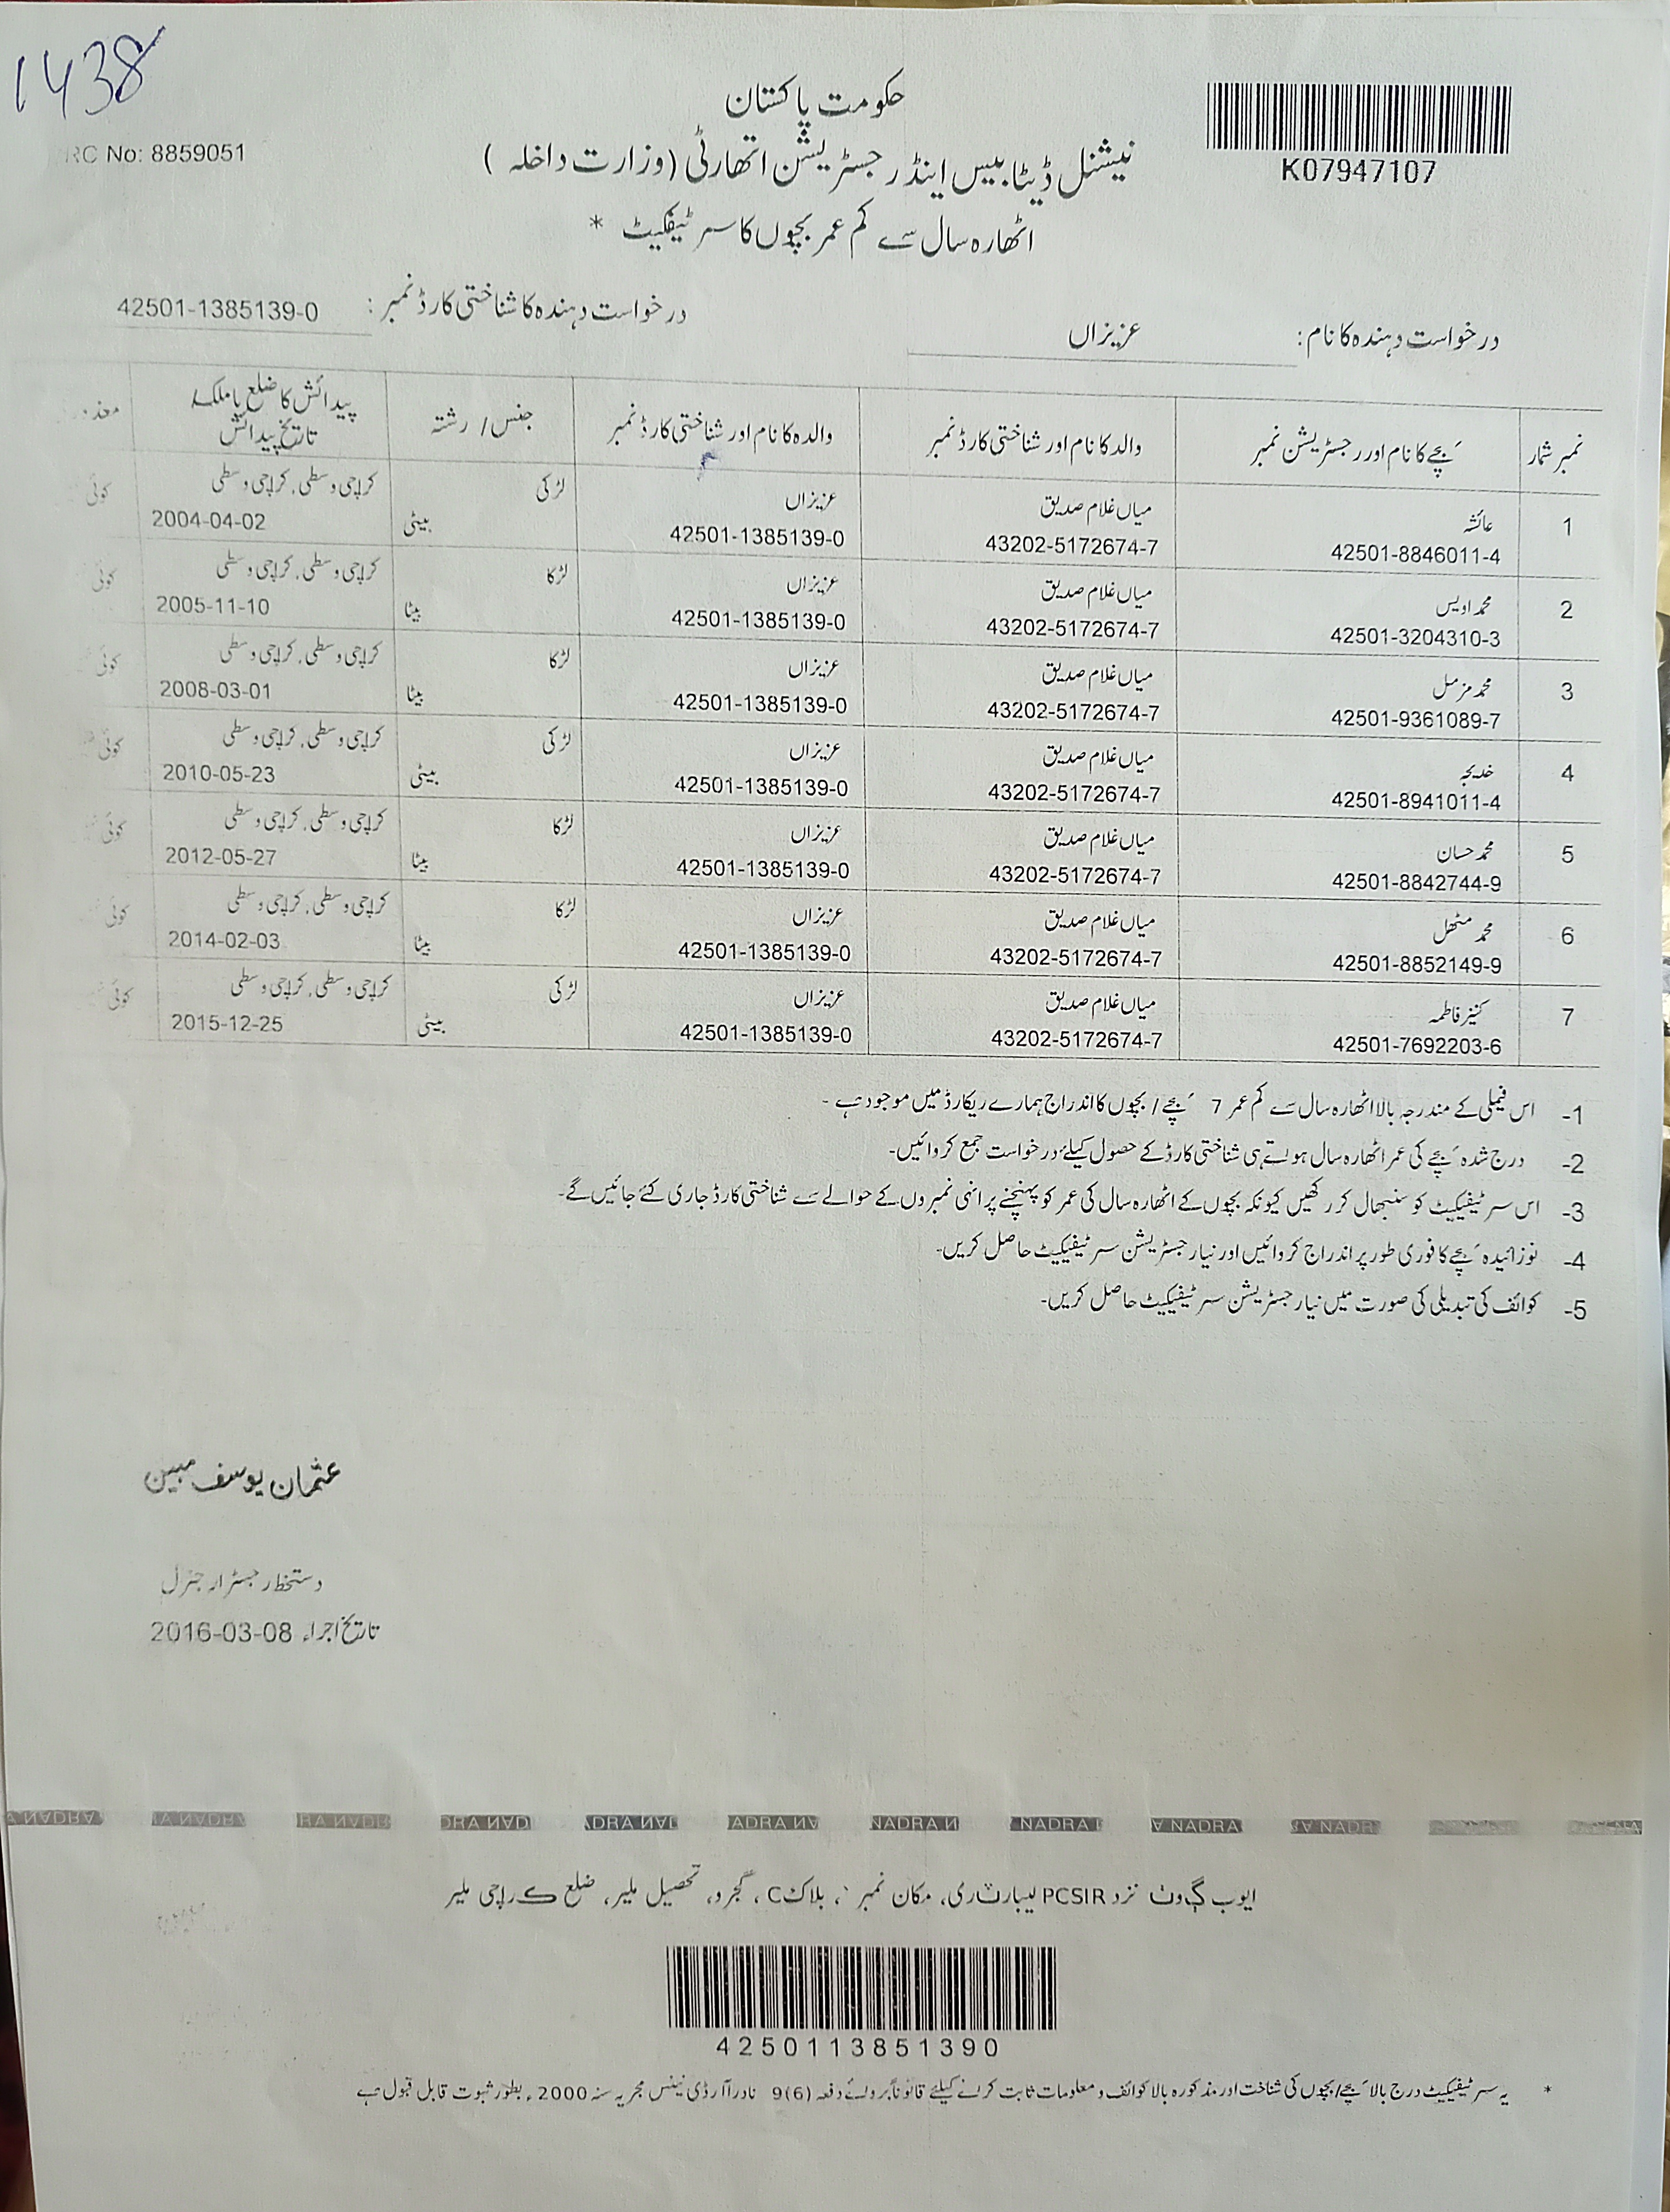 1438
RC No: 8859051
حکومت پاکستان
K07947107
نیشنل ڈیٹا بیس اینڈ رجسٹریشن اتھارٹی (وزارت داخلہ)
اٹھارہ سال سے کم عمر بچوں کا سرٹیفکیٹ *
درخواست دہندہ کا نام: عزیزاں
درخواست دہندہ کا شناختی کارڈ نمبر: 42501-1385139-0
نمبر شمار | بچے کا نام اور رجسٹریشن نمبر | والد کا نام اور شناختی کارڈ نمبر | والدہ کا نام اور شناختی کارڈ نمبر | جنس / رشتہ | پیدائش کا ضلع یا ملک / تاریخ پیدائش
1 | عائشہ | میاں غلام صدیق | عزیزاں | لڑکی | کراچی وسطی, کراچی وسطی | کوئی
42501-8846011-4 | 43202-5172674-7 | 42501-1385139-0 | بیٹی | 2004-04-02
2 | محمد اویس | میاں غلام صدیق | عزیزاں | لڑکا | کراچی وسطی, کراچی وسطی | کوئی
42501-3204310-3 | 43202-5172674-7 | 42501-1385139-0 | بیٹا | 2005-11-10
3 | محمد مزمل | میاں غلام صدیق | عزیزاں | لڑکا | کراچی وسطی, کراچی وسطی | کوئی
42501-9361089-7 | 43202-5172674-7 | 42501-1385139-0 | بیٹا | 2008-03-01
4 | خدیجہ | میاں غلام صدیق | عزیزاں | لڑکی | کراچی وسطی, کراچی وسطی | کوئی
42501-8941011-4 | 43202-5172674-7 | 42501-1385139-0 | بیٹی | 2010-05-23
5 | محمد حسان | میاں غلام صدیق | عزیزاں | لڑکا | کراچی وسطی, کراچی وسطی | کوئی
42501-8842744-9 | 43202-5172674-7 | 42501-1385139-0 | بیٹا | 2012-05-27
6 | محمد مٹھل | میاں غلام صدیق | عزیزاں | لڑکا | کراچی وسطی, کراچی وسطی | کوئی
42501-8852149-9 | 43202-5172674-7 | 42501-1385139-0 | بیٹا | 2014-02-03
7 | کنیز فاطمہ | میاں غلام صدیق | عزیزاں | لڑکی | کراچی وسطی, کراچی وسطی | کوئی
42501-7692203-6 | 43202-5172674-7 | 42501-1385139-0 | بیٹی | 2015-12-25
1- اس فیملی کے مندرجہ بالا اٹھارہ سال سے کم عمر 7 بچے / بچوں کا اندراج ہمارے ریکارڈ میں موجود ہے -
2- درج شدہ بچے کی عمر اٹھارہ سال ہوتے ہی شناختی کارڈ کے حصول کیلئے درخواست جمع کروائیں-
3- اس سرٹیفیکیٹ کو سنبھال کر رکھیں کیونکہ بچوں کے اٹھارہ سال کی عمر کو پہنچنے پر انہی نمبروں کے حوالے سے شناختی کارڈ جاری کئے جائیں گے-
4- نوزائیدہ بچے کا فوری طور پر اندراج کروائیں اور نیا رجسٹریشن سرٹیفیکیٹ حاصل کریں-
5- کوائف کی تبدیلی کی صورت میں نیا رجسٹریشن سرٹیفیکیٹ حاصل کریں-
عثمان یوسف مبین
دستخط رجسٹرار جنرل
تاریخ اجراء 2016-03-08
NADRA NADRA NADRA NADRA NADRA NADRA NADRA NADRA NADRA NADRA
ایوب گوٹ نزد PCSIR لیبارٹری، مکان نمبر ، بلاک C، گجرو، تحصیل ملیر، ضلع کراچی ملیر
4250113851390
* یہ سرٹیفیکیٹ درج بالا بچے/بچوں کی شناخت اور مذکورہ بالا کوائف و معلومات ثابت کرنے کیلئے قانوناً بروئے دفعہ 9(6) نادرا آرڈی نینس مجریہ سنہ 2000ء بطور ثبوت قابل قبول ہے